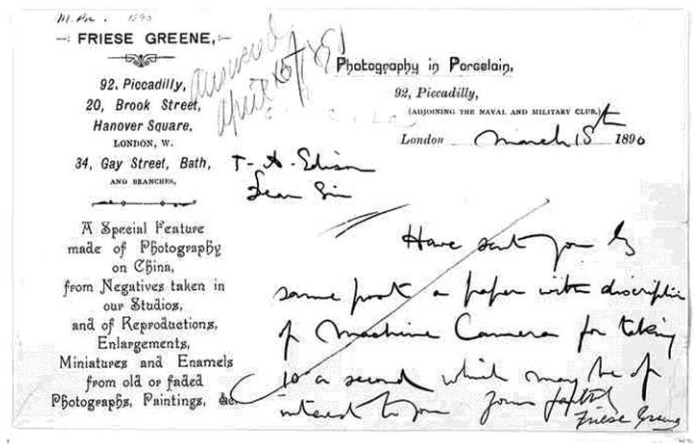 M. Pic. 1890
FRIESE GREENE,
92, Piccadilly,
20, Brook Street,
Hanover Square,
LONDON, W.
34, Gay Street, Bath,
AND BRANCHES,
A Special Feature
made of Photography
on China,
from Negatives taken in
our Studios,
and of Reproductions,
Enlargements,
Miniatures and Enamels
from old or faded
Photographs, Paintings, &c
answered
April 15/90
Photography in Porcelain,
92, Piccadilly,
(ADJOINING THE NAVAL AND MILITARY CLUB.)
London March 18th 1890
T-A-Edison
Dear Sir
Have sent you by
same post a paper with discription
of Machine Camera for taking
10 a second which may be of
interest to you Yours faithful
Friese Greene